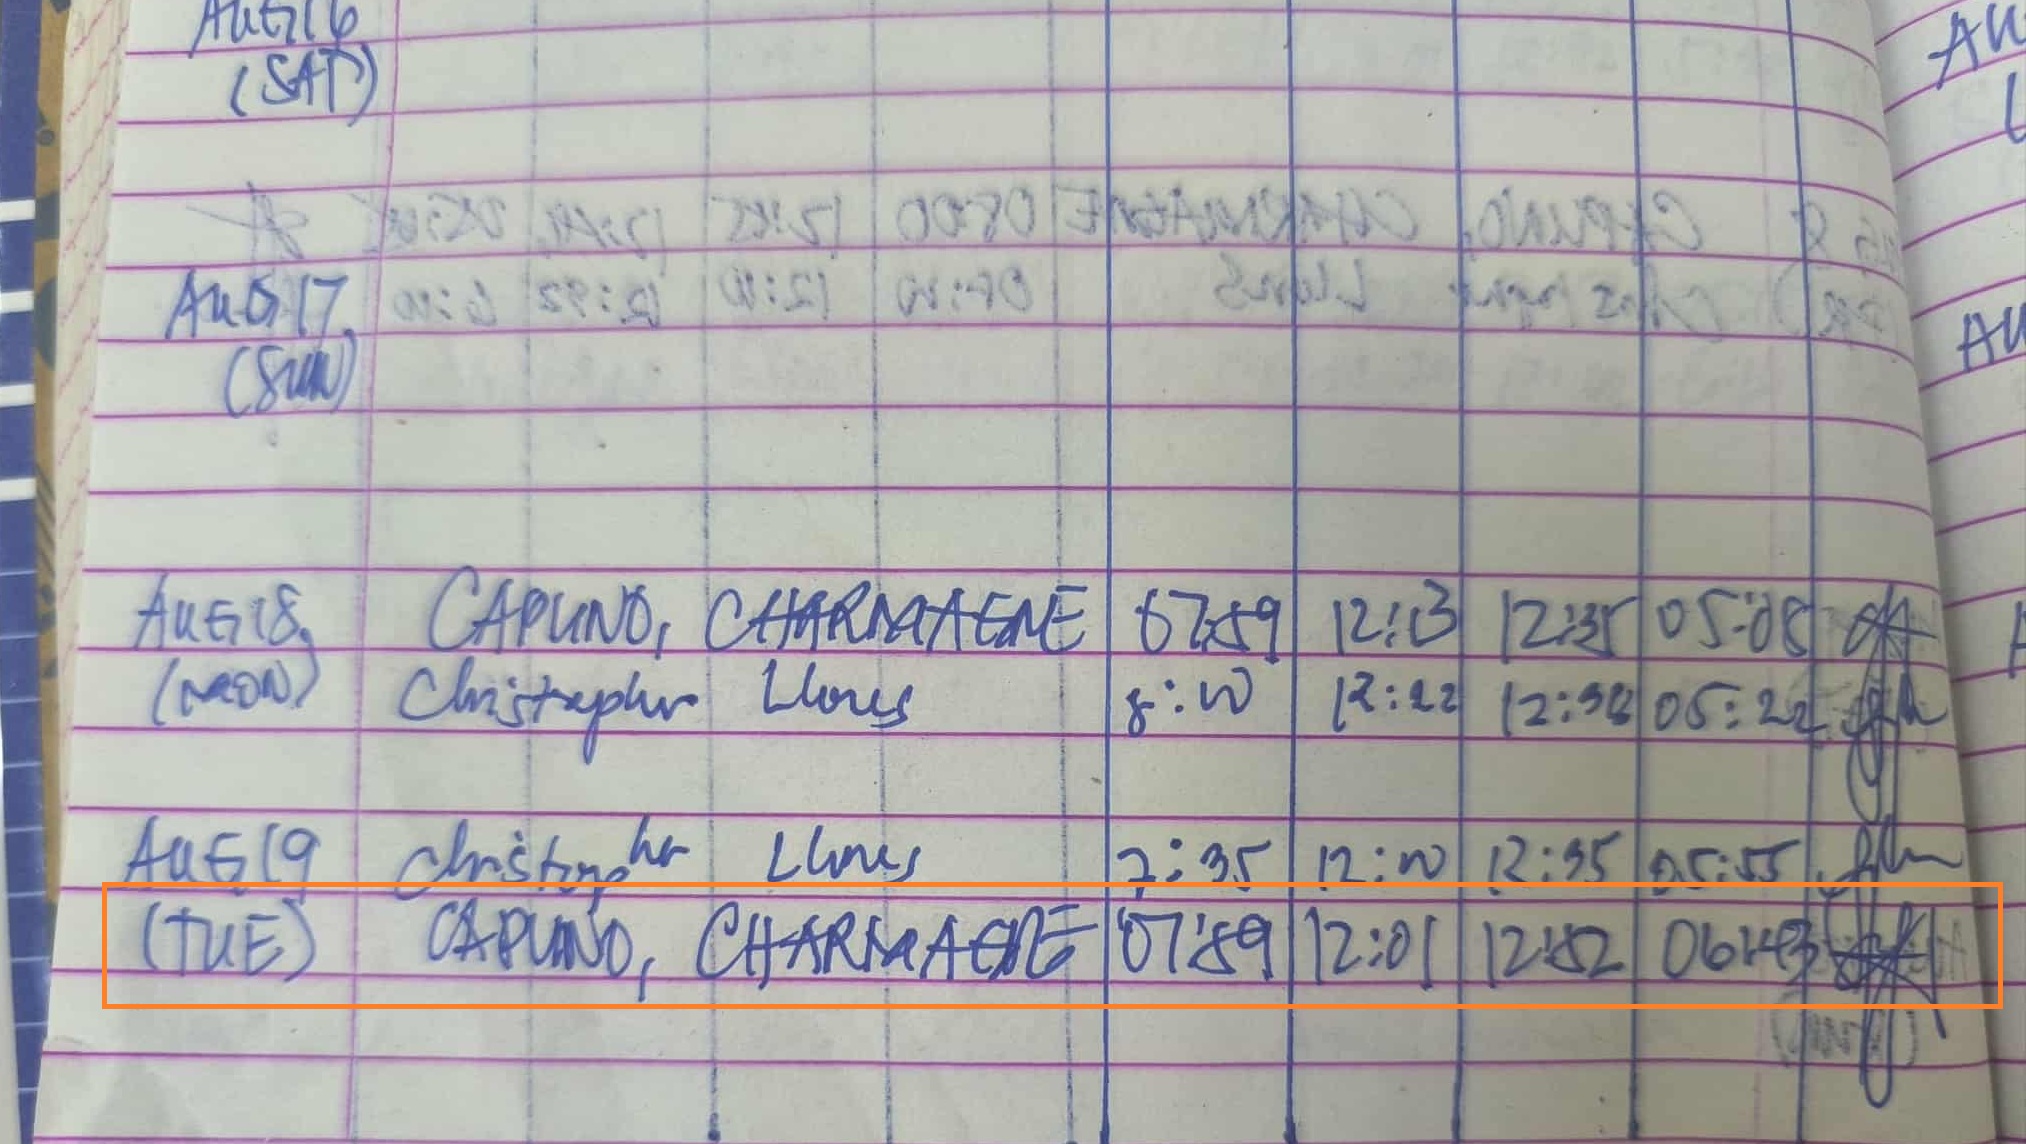 AUG 16
(SAT)
AUG 17,
(SUN)
AUG 18, CAPUNO, CHARMAENE 07:59 12:13 12:35 05:08
(MON) Christopher Llones 8:00 12:22 12:38 05:22
AUG 19 Christopher Llones 7:35 12:00 12:35 05:55
(TUE) CAPUNO, CHARMAENE 07:59 12:01 12:52 06:43